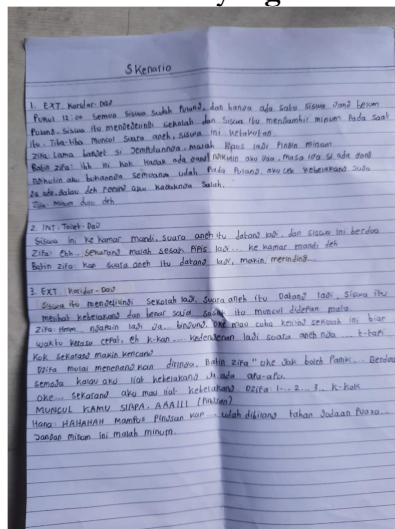 Skenario
1. EXT. Koridor. Day
Pukul 12:00 semua siswa sudah Pulang, dan hanya ada satu siswa yang belum
Pulang. Siswa itu mengelilingi sekolah dan siswa itu mengambil minum Pada saat
itu. Tiba-tiba Muncul suara aneh, siswa ini ketakutan.
Zifa: Lama banget si Jemputannya, malah Haus lagi Pingin minum.
Batin Zifa: ihh ini kok kayak ada yang ngikutin aku yaa, masa iya si ada yang
ngikutin aku bukannya semuanya udah Pada Pulang, aku cek kebelakang juga
ga ada, galau deh aku kayaknya salah.
minum dulu deh
2. INT. Toilet. Day
Siswa ini ke kamar mandi, suara aneh itu datang lagi, dan siswa ini berdoa
Zifa: Ehh.. sekarang malah sesak PiPis lagi... ke kamar mandi deh
Batin Zifa: kan suara aneh itu datang lagi, makin merinding...
3. EXT. Koridor. Day
Siswa itu mengelilingi sekolah lagi, suara aneh itu Datang lagi, siswa itu
melihat kebelakang dan benar saja sosok itu muncul didepan mata
Zifa: Hmm.. ngapain lagi ya.. bingung, oke mau coba keliling sekolah ini biar
waktu kerasa cepat, eh k-kan... kedengeran lagi suara aneh nya... t-tapi
kok sekarang makin kencang
Zifa mulai menenangkan dirinya, Batin Zifa " oke gak boleh Panik... Berdoa
semoga kalau aku liat kebelakang ga ada apa-apa.
oke... sekarang aku mau liat kebelakang Zifa: 1-.. 2-.. 3.. k-kok
MUNCUL KAMU SIAPA, AAAIII (Pingsan)
Hana: HAHAHAH MamPus Pingsan kan... udah dibilang tahan godaan Puasa...
Jangan minum ini malah minum.